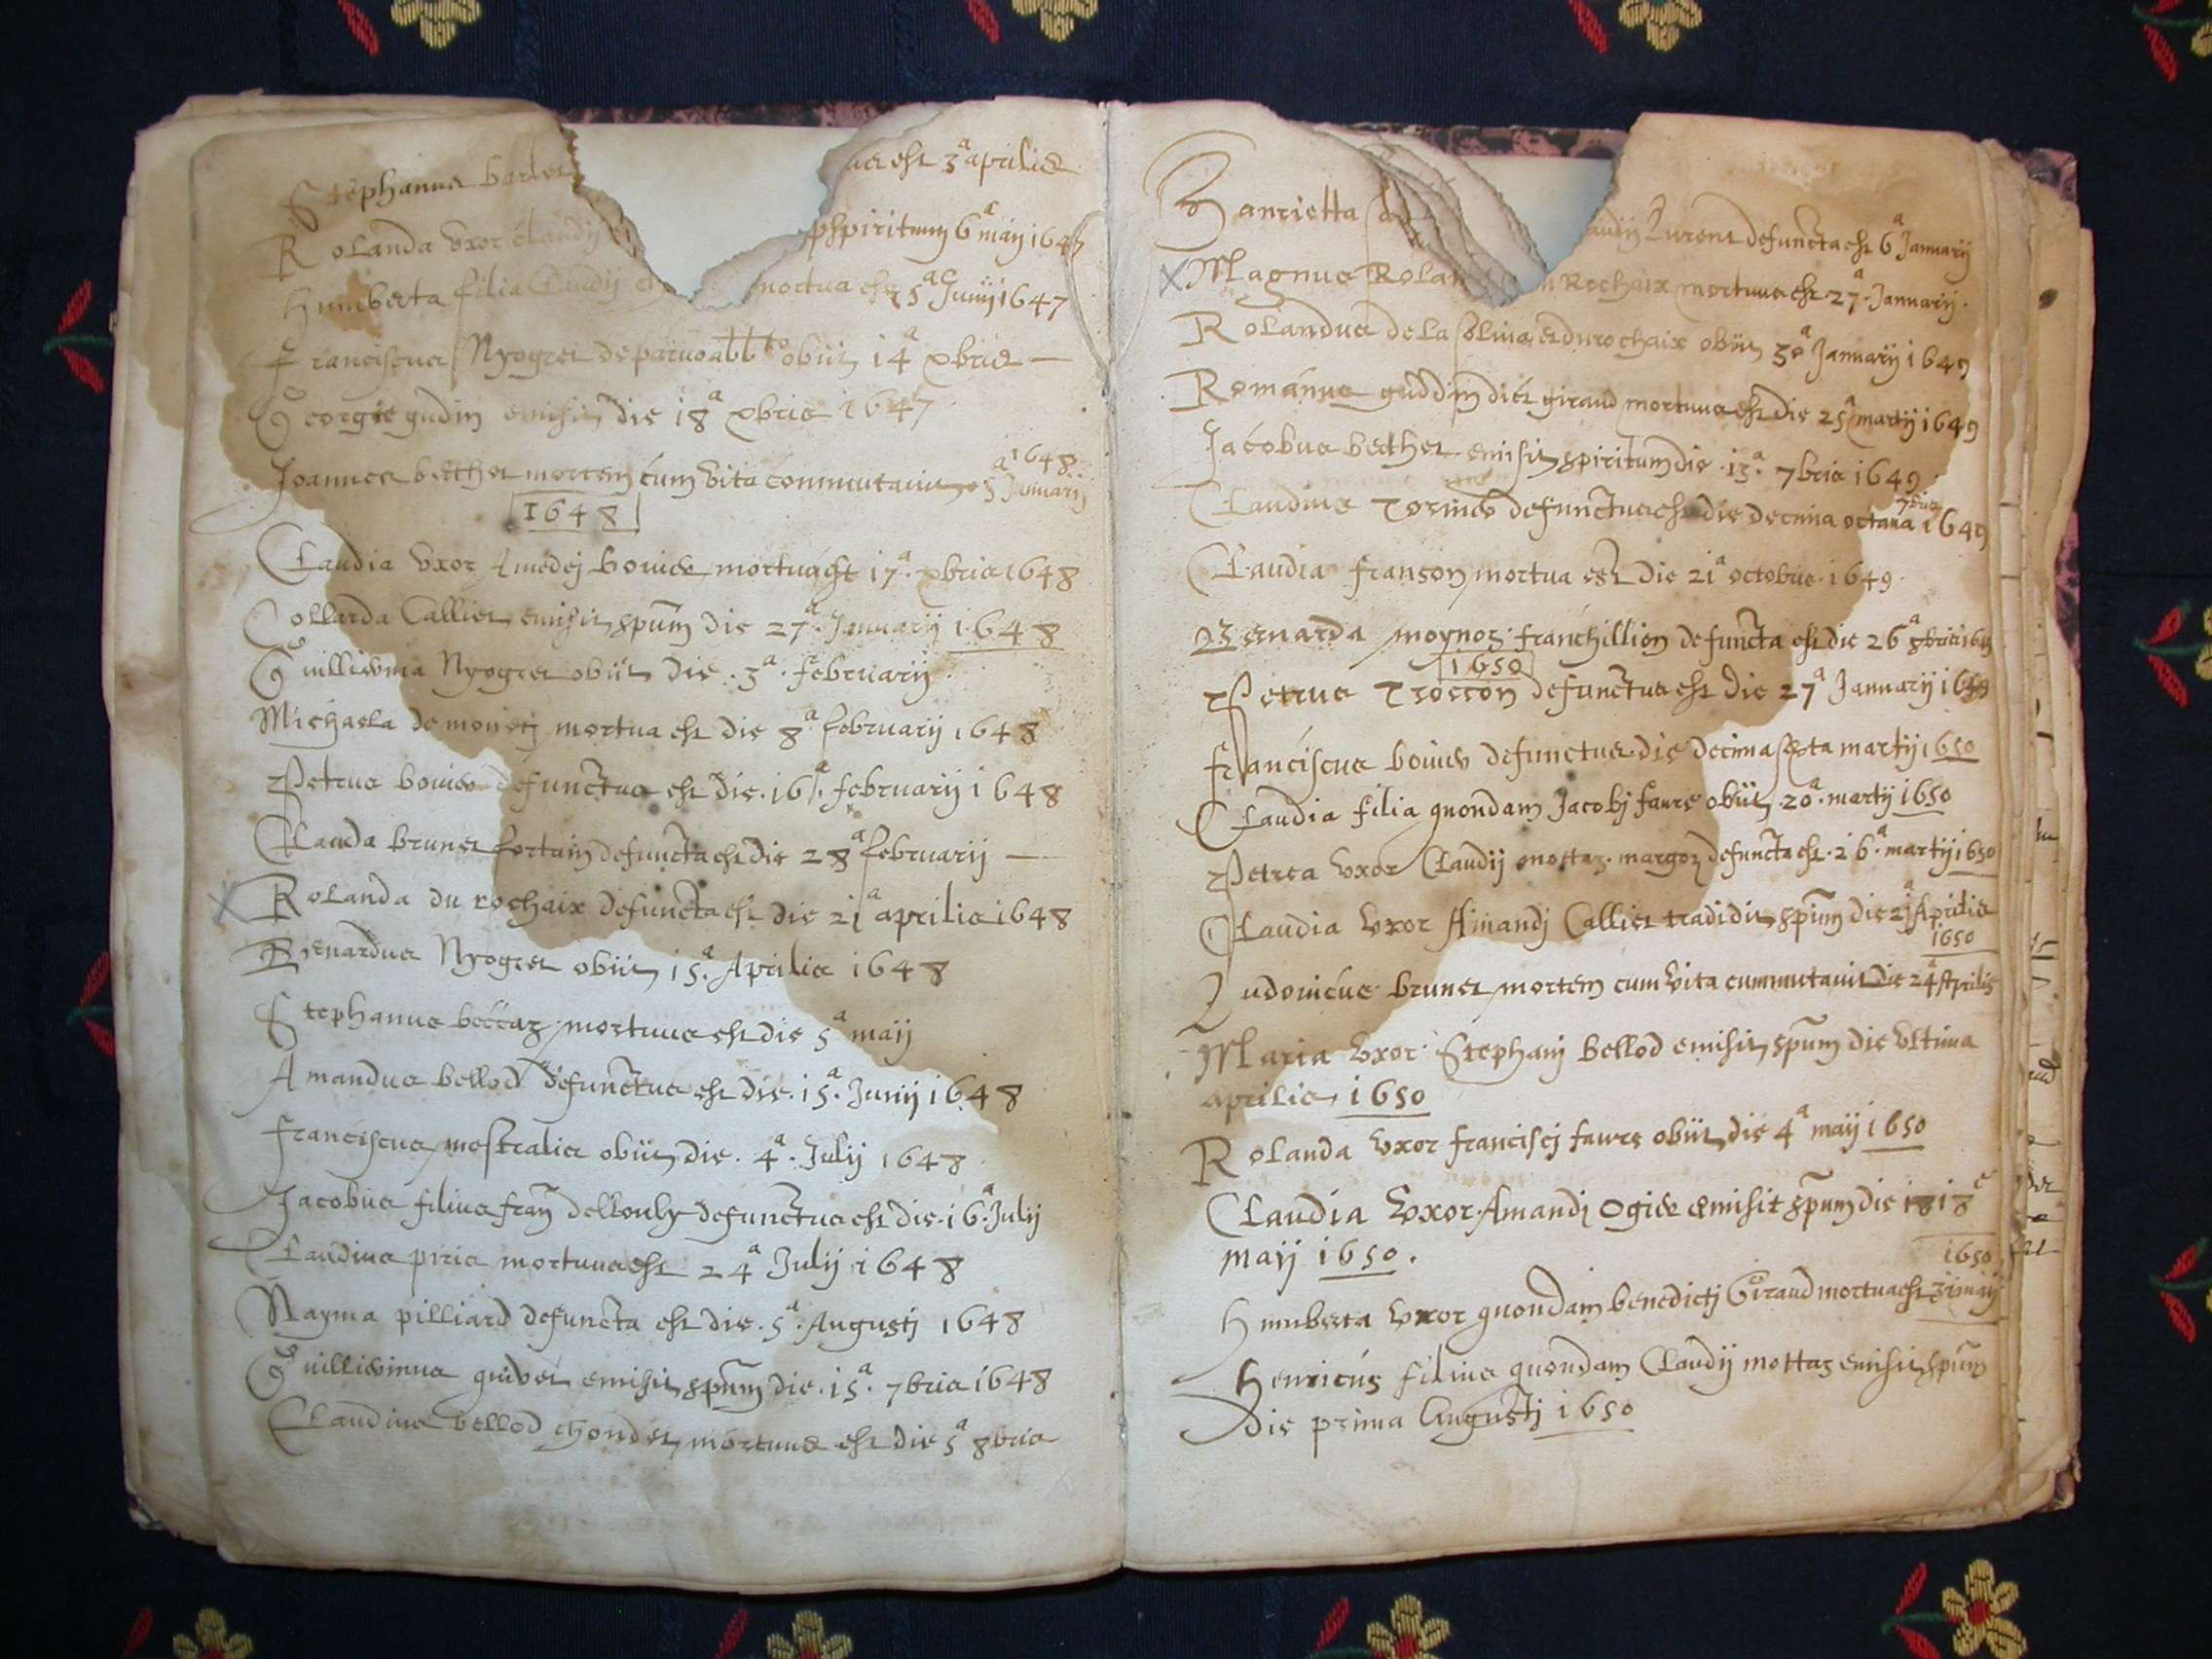 Stephanus
us est 3ª aprilis
Rolanda uxor claudij
spiritum 6ª maij 1647
Humberta filia Claudij
mortua est 5ª Junij 1647
Franciscus Nyogret de paruo abbto obiit 14ª xbris
George gudin emisit die 18ª xbris 1647
Joannes becther mortem cum vita commutauit 5ª Januarij 1648
1648
Claudia uxor Amedej bouier mortua est 17ª xbris 1648
Collarda Callier emisit spum die 27ª Januarij 1648
Guillierma Nyogret obiit die 3ª februarij
Michaela de monetj mortua est die 8ª februarij 1648
Petrus bouier defunctus est die 16ª februarij 1648
Clauda brunet fortain defuncta est die 28ª februarij
Rolanda du rochaix defuncta est die 21ª aprilis 1648
Bernardus Nyogret obiit 15ª Aprilis 1648
Stephanus beccaz mortuus est die 5ª maij
Amandus bellod defunctus est die 15ª Junij 1648
Franciscus mestralis obiit die 4ª Julij 1648
Jacobus filius fran defunctus est die 16ª Julij
Claudius mortuus est 24ª Julij 1648
Nayma pilliard defuncta est die 5ª Augustj 1648
Guilliermus emisit spum die 15ª 7bris 1648
Claudius bellod mortuus est die 5ª 8bris
Hanrietta
defuncta est 6ª Januarij
Magnus Rolan
Rochaix mortuus est 27ª Januarij
Rolandus de la du rochaix obiit 30ª Januarij 1649
Romanus guddin dict giraud mortuus est die 25ª martij 1649
Jacobus becther emisit spiritum die 13ª 7bris 1649
Claudius defunctus est die decima octaua 7bris 1649
Claudia franson mortua est die 21ª octobris 1649
Bernarda moynoz franchillion defuncta est die 26ª
1650
Petrus Troccon defunctus est die 27ª Januarij
franciscus bouier defunctus die decima sexta martij 1650
Claudia filia quondam Jacobj faure obiit 20ª martij 1650
Petrea uxor Claudij mottaz margoz defuncta est 26ª martij 1650
Claudia uxor Amandj Callier tradidit spum die 21ª Aprilis
1650
Ludouicus brunet mortem cum vita cummutauit die 24ª Aprilis
Maria uxor Stephanj bellod emisit spum die ultima
aprilis 1650
Rolanda uxor franciscj faure obiit die 4ª maij 1650
Claudia uxor Amandj Ogier emisit spum die 18
maij 1650.
1650
Humberta uxor quondam benedictj Giraud mortua est maij
Henricus filius quondam Claudij mottaz emisit spum
die prima Augustj 1650